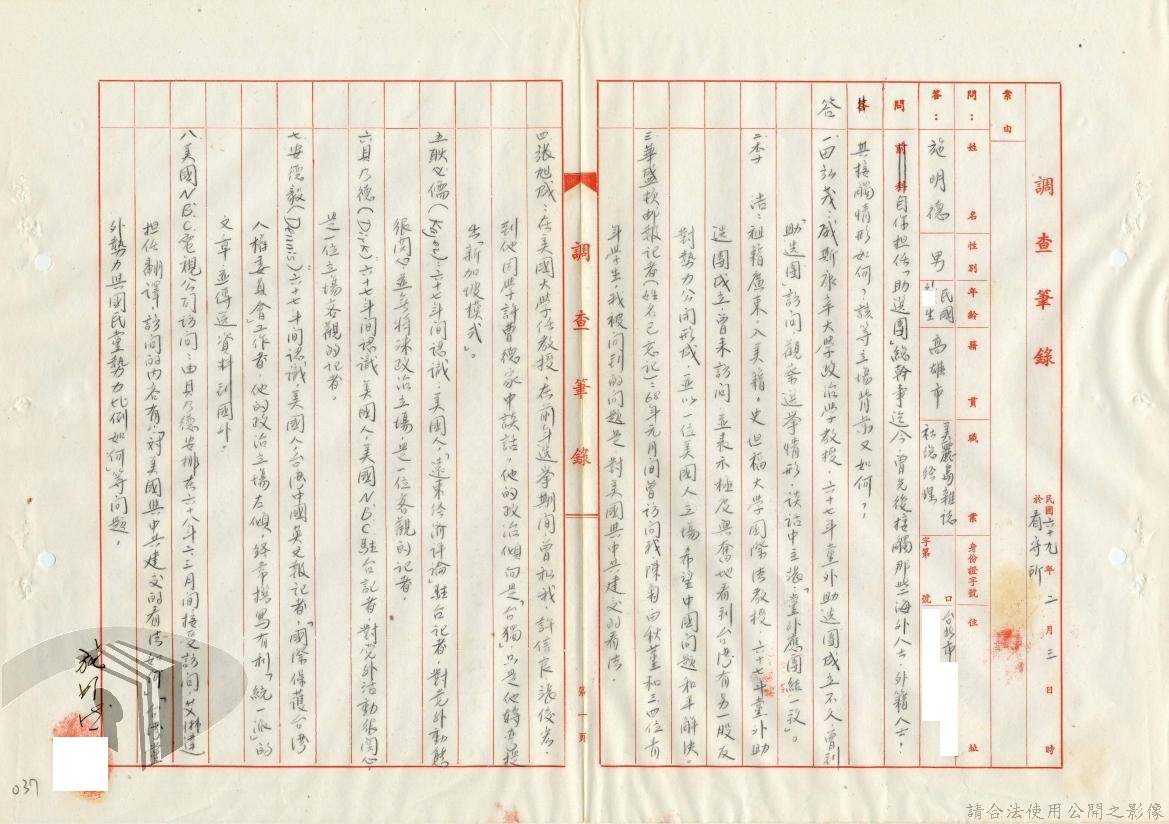 調查筆錄
民國六十九年二月三日 時
於看守所
案由
問：姓名 性別 年齡 籍貫 職業 身份證字號 住址
答：施明德 男 民國 生 高雄市 美麗島雜誌社總經理 字第 號 台北市
問 自你担任「助選團」總幹事迄今，曾先後接觸那些海外人士、外籍人士？
其接觸情形如何？該等立場背景又如何？
答 一、田弘茂：威斯康辛大學政治學教授，六十七年黨外助選團成立不久，曾到
「助選團」訪問，觀察選舉情形，談話中主張「黨外應團結一致」。
二、李 浩：祖籍廣東，入美籍。史但福大學國際法教授，六十七年黨外助
選團成立，曾來訪問，並表示極度興奮地看到台灣有另一股反
對勢力公開形成，並以一位美國人立場希望中國問題和平解決。
三、華盛頓郵報記者（姓名已忘記）：68年元月間曾訪問我、陳菊、田秋堇和三四位青
年學生，我被問到的問題是對美國與中共建交的看法。
調查筆錄
第一頁
四、張旭成：在美國大學任教授，在前年選舉期間曾和我、許信良、張俊宏
到他同學許曹德家中談話，他的政治傾向是「台獨」，只是他特為提
出「新加坡模式」。
五、耿必儒（Kajor）：六十七年間認識，美國人，「遠東經濟評論」駐台記者，對党外動態
很関心，並無特殊政治立場，是一位客觀的記者。
六、貝乃德（Dirk）：六十七年間認識，美國人，美國N.B.C駐台記者，對党外活動很関心，
是一位立場客觀的記者。
七、安德毅（Dennis）：六十七年間認識，美國人，台灣中國英文報記者，「國際保護台灣
人權委員會」工作者，他的政治立場左傾，經常撰寫有利「統一派」的
文章並傳遞資料到國外。
八、美國N.B.C電視公司訪問：由貝乃德安排在六十八年六三月間接受訪問，艾琳達
担任翻譯，訪問的內容有「對美國與中共建交的看法如何」「台灣黨
外勢力與國民黨勢力比例如何」等問題。
施明德
037
請合法使用公開之影像